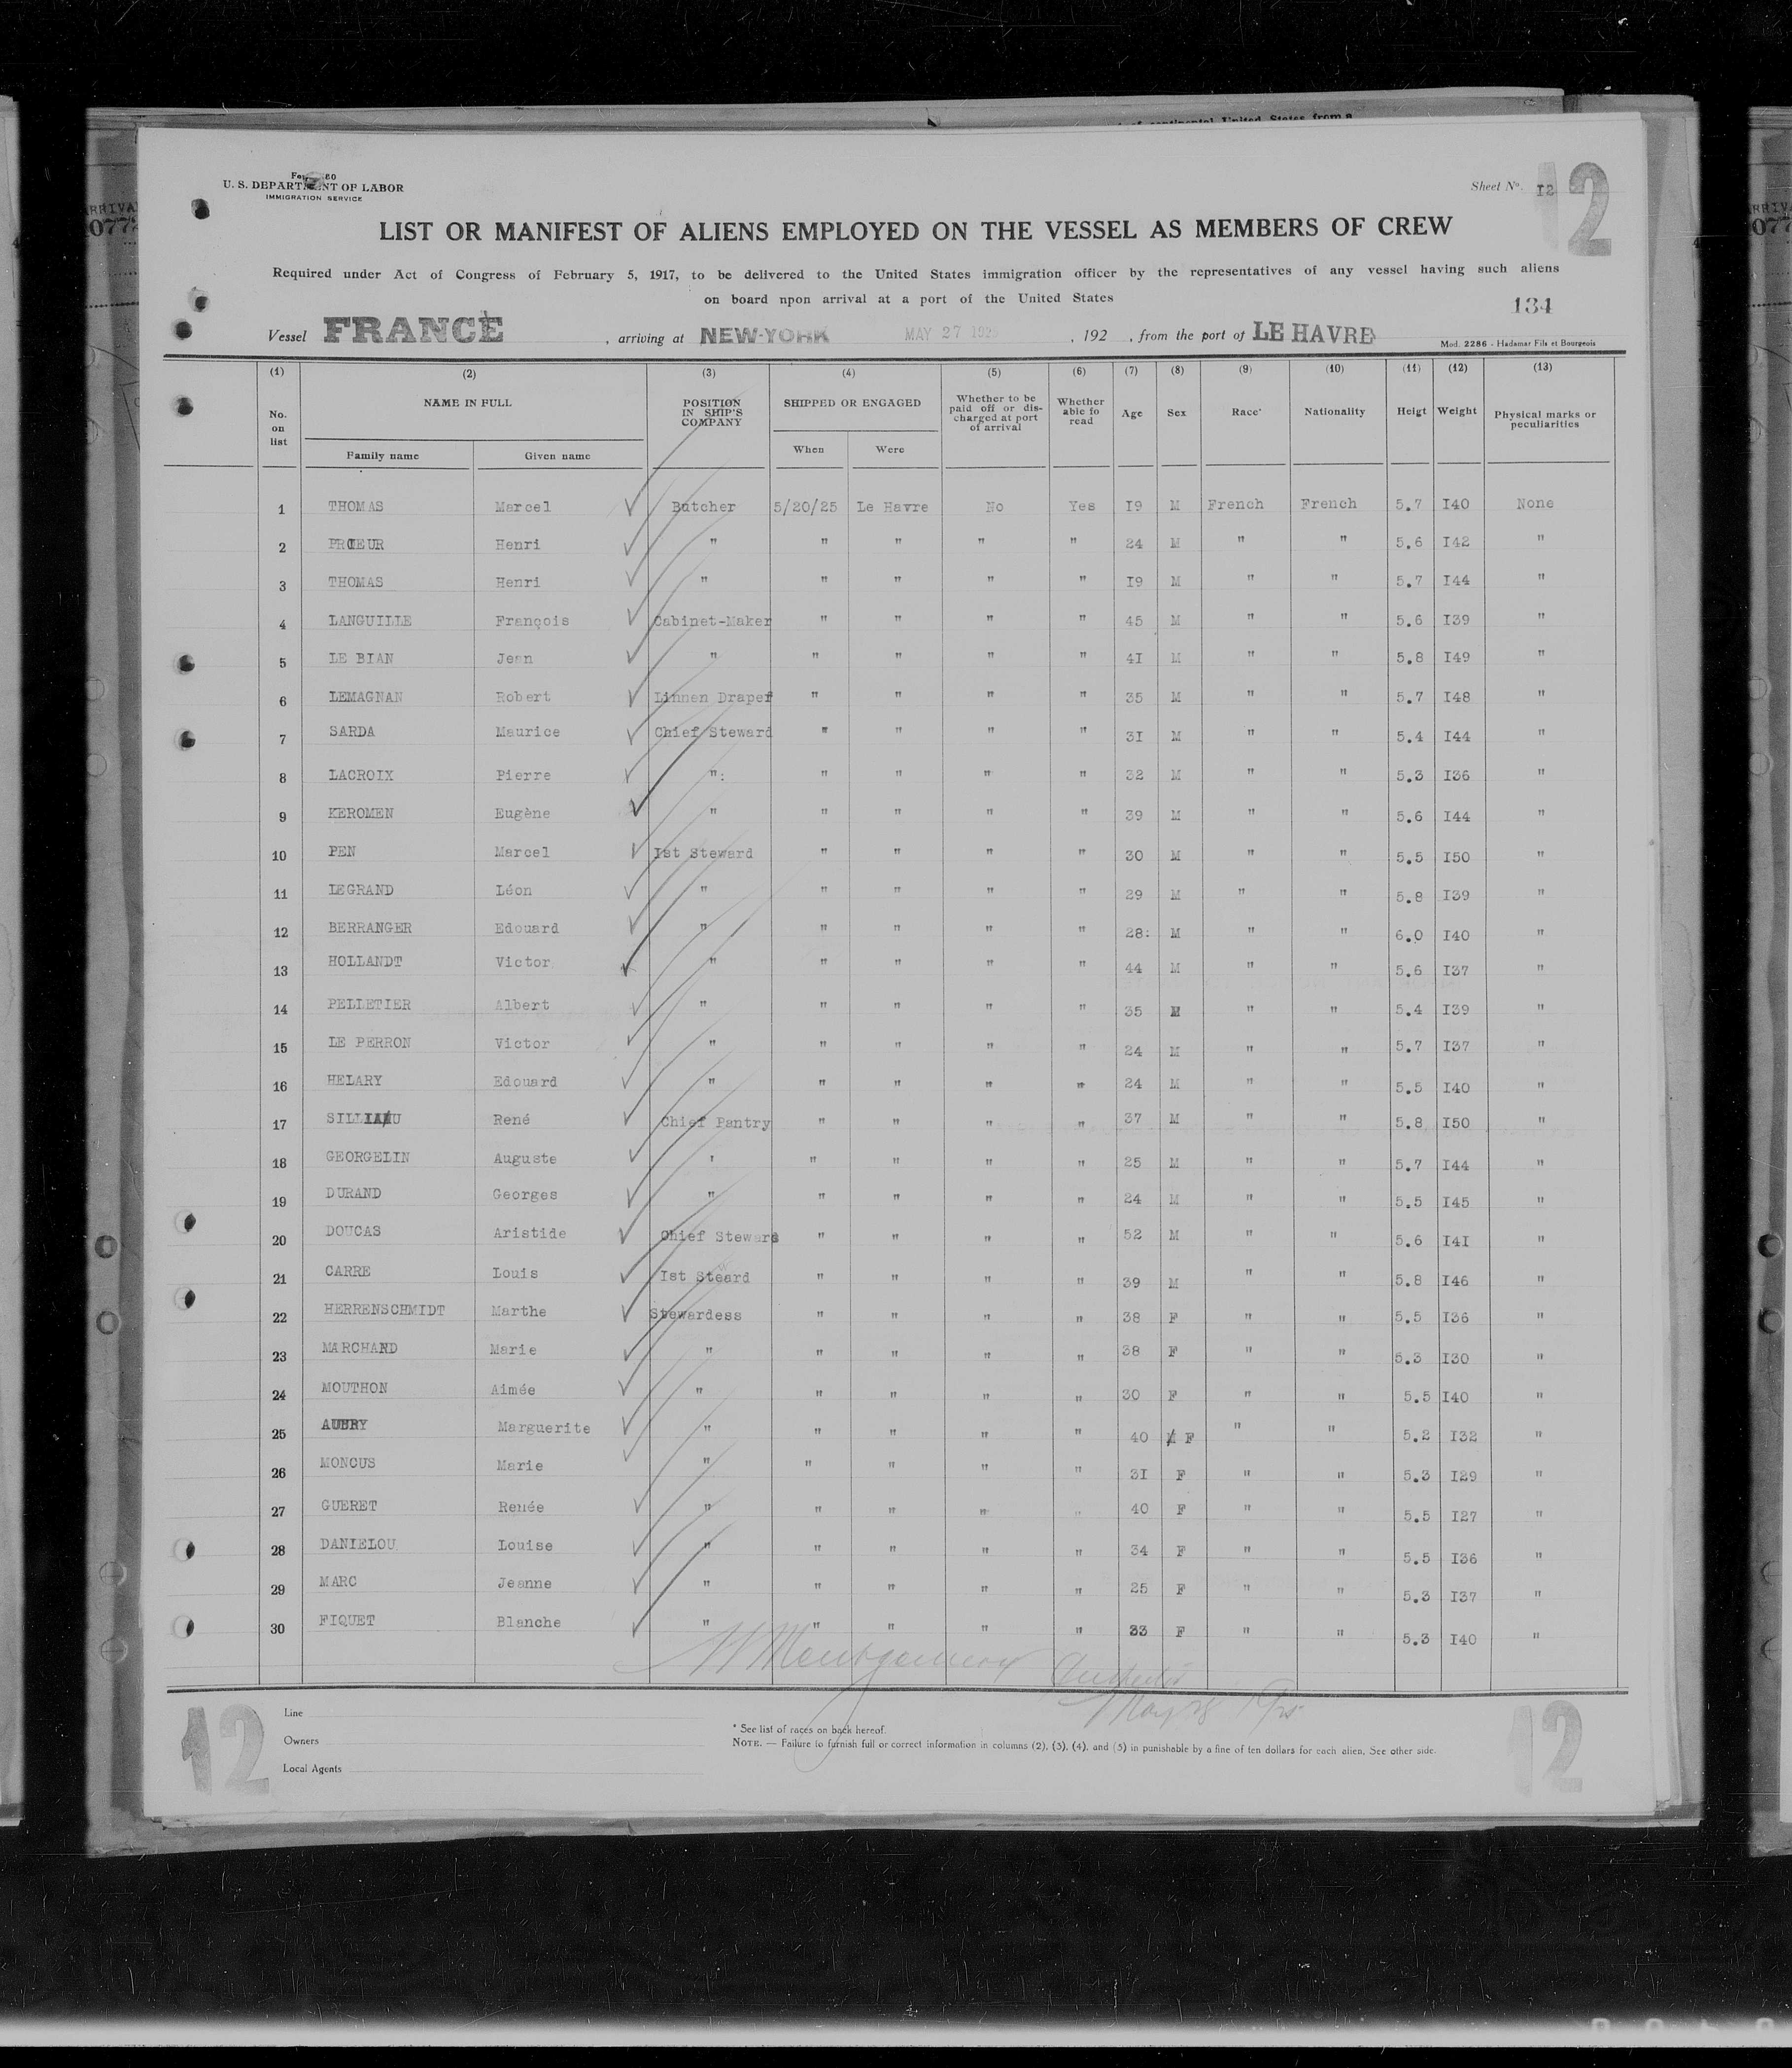 of continental United States from a
U. S. DEPARTMENT OF LABOR
IMMIGRATION SERVICE
Sheet No. I2
12
LIST OR MANIFEST OF ALIENS EMPLOYED ON THE VESSEL AS MEMBERS OF CREW
Required under Act of Congress of February 5, 1917, to be delivered to the United States immigration officer by the representatives of any vessel having such aliens
on board npon arrival at a port of the United States
134
Vessel FRANCE , arriving at NEW-YORK MAY 27 1925 , 192 , from the port of LE HAVRE
Mod. 2286 - Hadamar Fils et Bourgeois
(1) (2) (3) (4) (5) (6) (7) (8) (9) (10) (11) (12) (13)
No. on list NAME IN FULL POSITION IN SHIP'S COMPANY SHIPPED OR ENGAGED Whether to be paid off or discharged at port of arrival Whether able to read Age Sex Race* Nationality Heigt Weight Physical marks or peculiarities
Family name Given name When Were
1 THOMAS Marcel Butcher 5/20/25 Le Havre No Yes I9 M French French 5.7 I40 None
2 PRIEUR Henri " " " " " 24 M " " 5.6 I42 "
3 THOMAS Henri " " " " " I9 M " " 5.7 I44 "
4 LANGUILLE François Cabinet-Maker " " " " 45 M " " 5.6 I39 "
5 LE BIAN Jean " " " " " 4I M " " 5.8 I49 "
6 LEMAGNAN Robert Linnen Draper " " " " 35 M " " 5.7 I48 "
7 SARDA Maurice Chief Steward " " " " 3I M " " 5.4 I44 "
8 LACROIX Pierre ": " " " " 32 M " " 5.3 I36 "
9 KEROMEN Eugène " " " " " 39 M " " 5.6 I44 "
10 PEN Marcel Ist Steward " " " " 30 M " " 5.5 I50 "
11 LEGRAND Léon " " " " " 29 M " " 5.8 I39 "
12 BERRANGER Edouard " " " " " 28: M " " 6.0 I40 "
13 HOLLANDT Victor " " " " " 44 M " " 5.6 I37 "
14 PELLETIER Albert " " " " " 35 M " " 5.4 I39 "
15 LE PERRON Victor " " " " " 24 M " " 5.7 I37 "
16 HELARY Edouard " " " " " 24 M " " 5.5 I40 "
17 René Chief Pantry " " " " 37 M " " 5.8 I50 "
18 GEORGELIN Auguste ' " " " " 25 M " " 5.7 I44 "
19 DURAND Georges " " " " " 24 M " " 5.5 I45 "
20 DOUCAS Aristide Chief Steward " " " " 52 M " " 5.6 I4I "
21 CARRE Louis Ist Steard " " " " 39 M " " 5.8 I46 "
22 HERRENSCHMIDT Marthe Stewardess " " " " 38 F " " 5.5 I36 "
23 MARCHAND Marie " " " " " 38 F " " 5.3 I30 "
24 MOUTHON Aimée " " " " " 30 F " " 5.5 I40 "
25 AUBRY Marguerite " " " " " 40 F " " 5.2 I32 "
26 MONCUS Marie " " " " " 3I F " " 5.3 I29 "
27 GUERET Renée " " " " " 40 F " " 5.5 I27 "
28 DANIELOU Louise " " " " " 34 F " " 5.5 I36 "
29 MARC Jeanne " " " " " 25 F " " 5.3 I37 "
30 FIQUET Blanche " " " " " 33 F " " 5.3 I40 "
Montgomery
May 28
Line
Owners
Local Agents
* See list of races on back hereof.
NOTE. — Failure to furnish full or correct information in columns (2), (3), (4), and (5) in punishable by a fine of ten dollars for each alien, See other side.
12
12